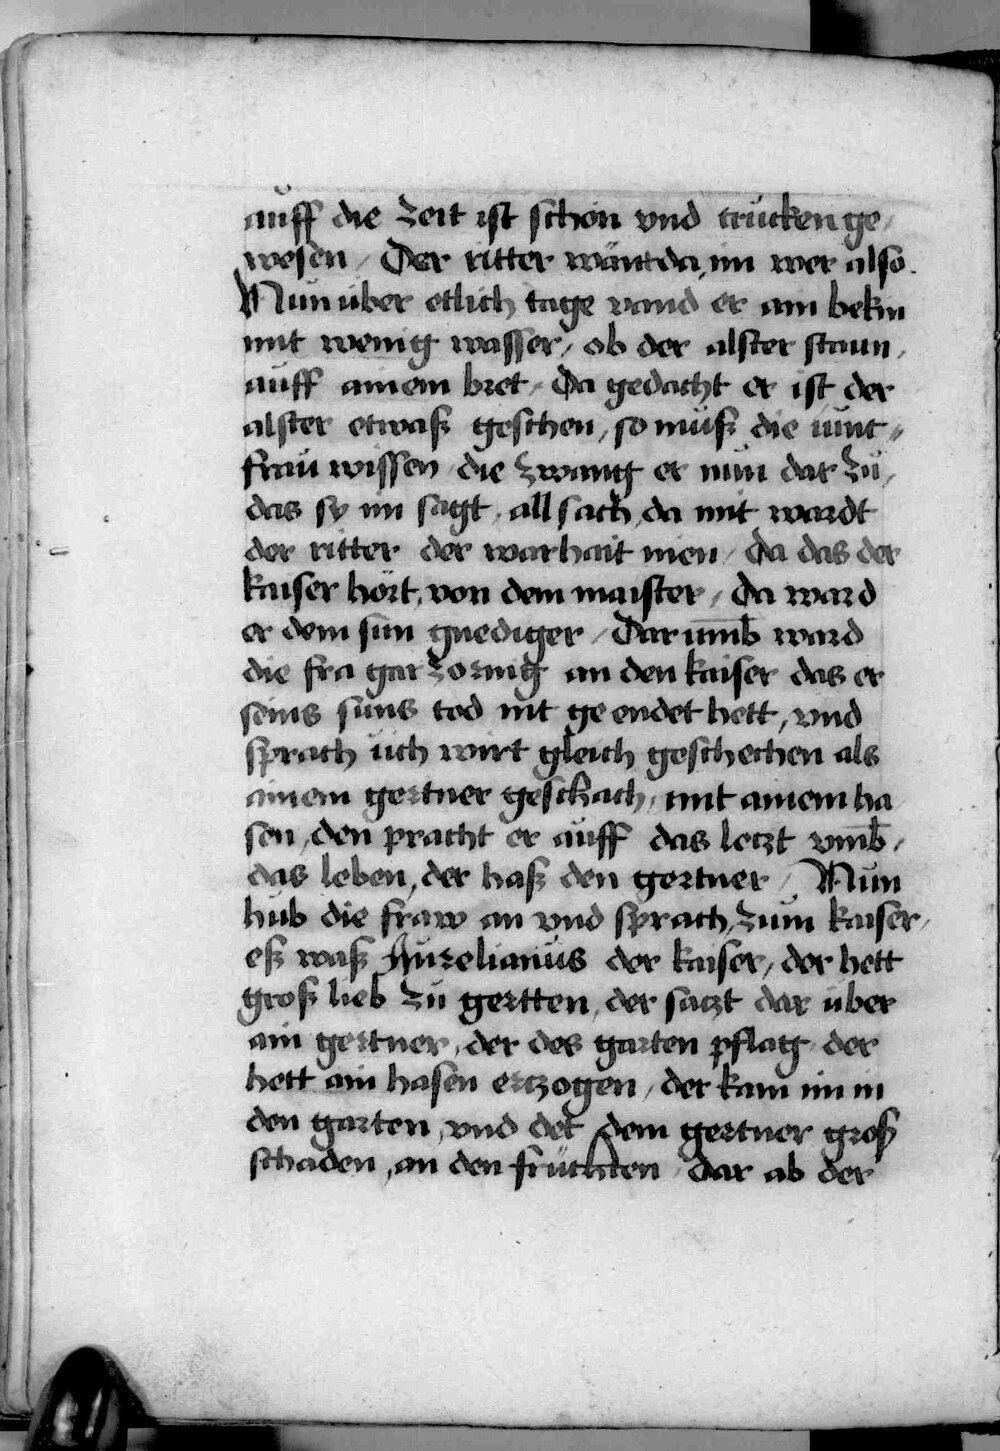 auff die zeit ist schön vnd trucken ge,
wesen / Der ritter wänt da, im wer also.
Nun über etlich tage vand er ain bekin
mit wenig wasser / ob der alster staun,
auff ainem bret / Da gedacht er ist der
alster etwaß geschen, so muß die iunt„
frau wissen / die zwang er nun dar zu,
das sy im sagt / all sach, da mit wardt
der ritter der warhait inen / Da das der
kaiser hört, von dem maister / Da ward
er dem sun gnediger / Dar vmb ward
die fra gar zornig an den kaiser das er
seins suns tod nit ge endet hett, vnd
sprach üch wirt gleich geschechen als
ainem gertner geschach, mit ainem ha
sen, den pracht er auff das letzt vmb,
das leben, der haß den gertner / Nun
hub die fraw an vnd sprach, zum kaiser,
eß waß Aurelianus der kaiser, der hett
groß lieb zu gertten, der satzt dar über
ain gertner, der des garten pflag / der
hett ain hasen ertzogen / der kam im in
den garten, vnd det dem gertner groß
schaden, an den früchten / Dar ab der